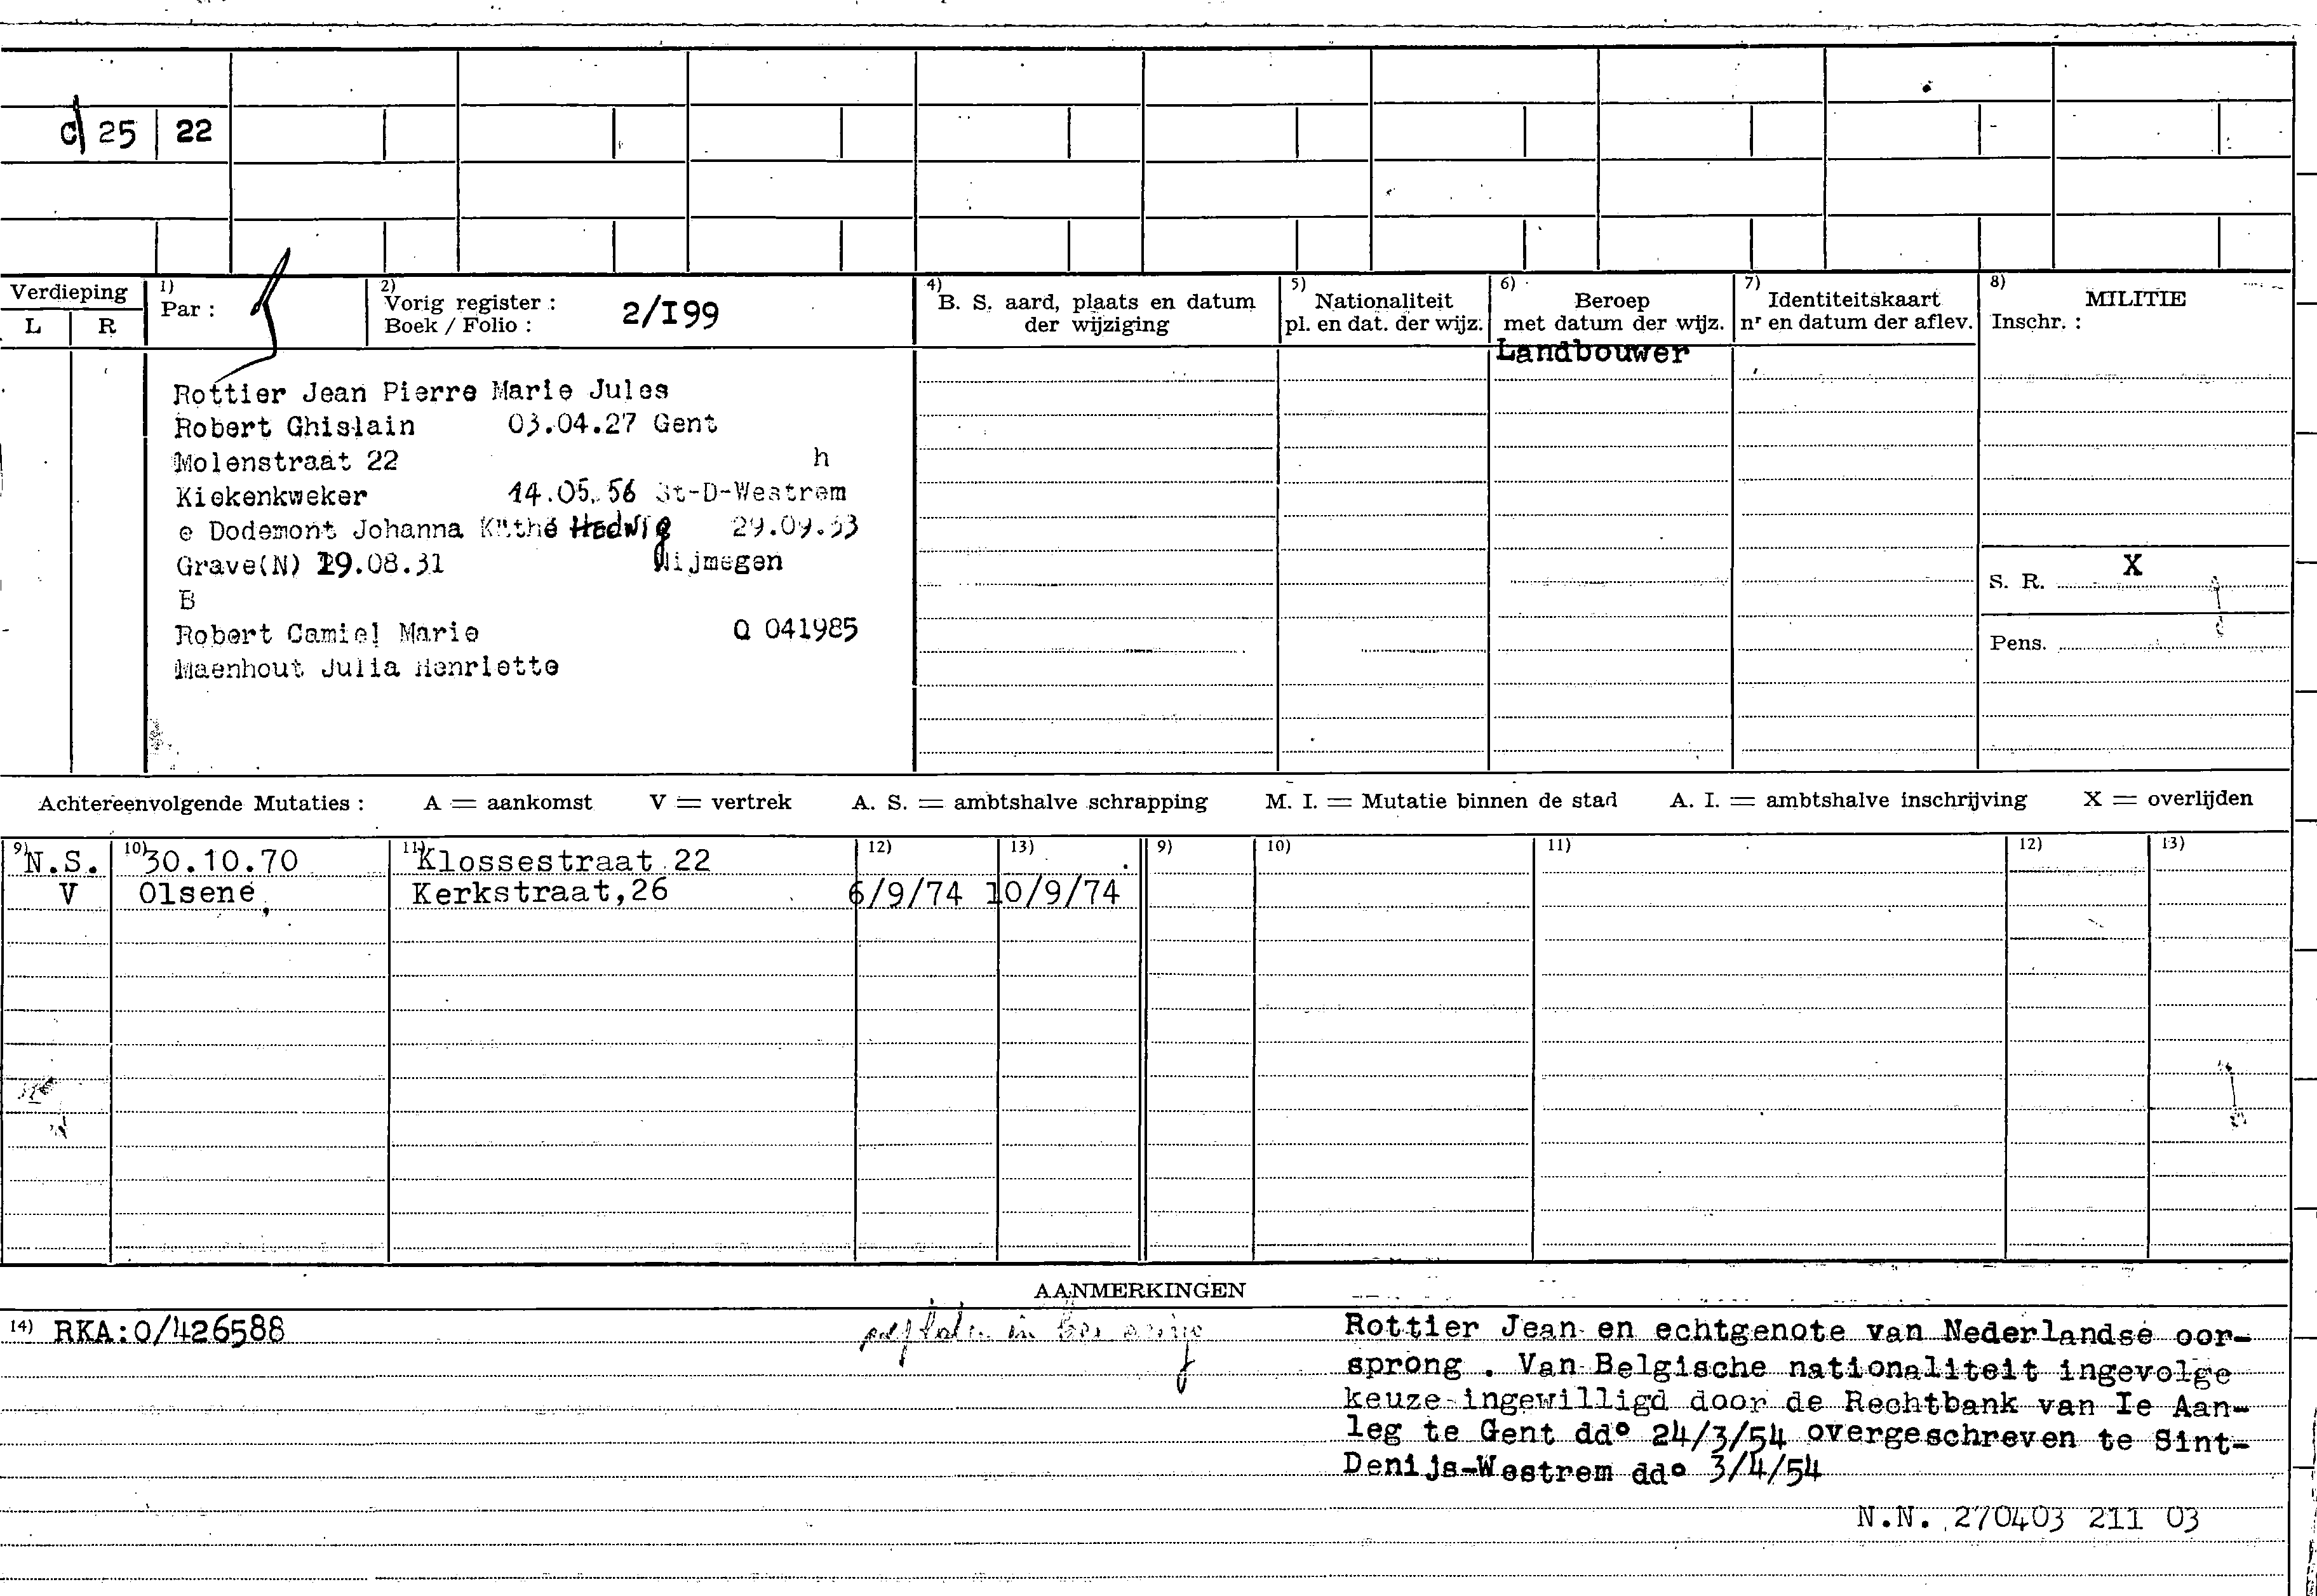 C 25 22
Verdieping
L R
1) Par :
2) Vorig register :
Boek / Folio : 2/I99
4) B. S. aard, plaats en datum
der wijziging
5) Nationaliteit
pl. en dat. der wijz.
6) Beroep
met datum der wijz.
7) Identiteitskaart
nr en datum der aflev.
8) MILITIE
Inschr. :
Landbouwer
Rottier Jean Pierre Marie Jules
Robert Ghislain 03.04.27 Gent
Molenstraat 22 h
Kiekenkweker 14.05.56 St-D-Westrem
e Dodemont Johanna Käthé Hedwig 29.09.53
Grave(N) 19.08.31 Nijmegen
B
Robert Camiel Marie Q 041985
Maenhout Julia Henriette
S. R. X
Pens.
Achtereenvolgende Mutaties : A = aankomst V = vertrek A. S. = ambtshalve schrapping M. I. = Mutatie binnen de stad A. I. = ambtshalve inschrijving X = overlijden
9) 10) 11) 12) 13) 9) 10) 11) 12) 13)
N.S. 30.10.70 Klossestraat 22
V Olsene, Kerkstraat,26 6/9/74 10/9/74
AANMERKINGEN
14) RKA:0/426588
in
Rottier Jean en echtgenote van Nederlandse oor-
sprong . Van Belgische nationaliteit ingevolge
keuze ingewilligd door de Rechtbank van Ie Aan-
leg te Gent dd° 24/3/54 overgeschreven te Sint-
Denijs-Westrem dd° 3/4/54
N.N. 270403 211 03